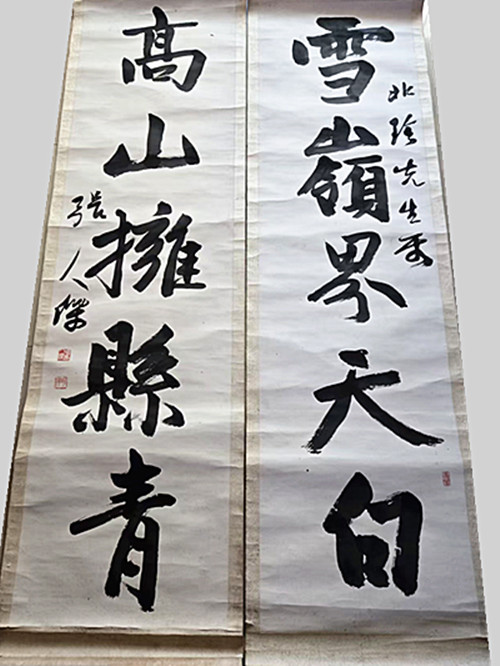 雪嶺界天白
先生
高山擁縣青
張人傑